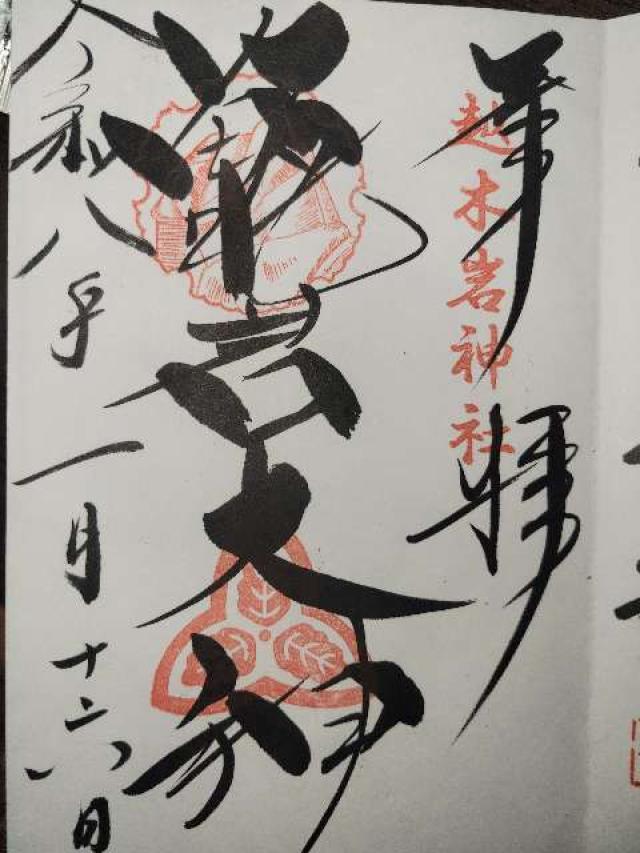 奉拝
越木岩神社
甑岩大神
令和八年一月十六日